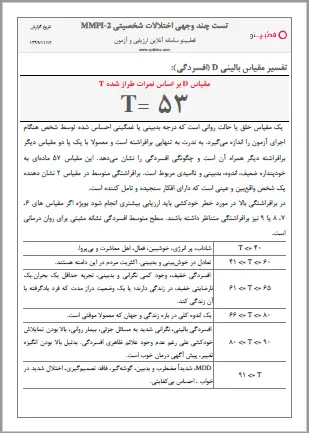 تست چند وجهی اختلالات شخصیتی MMPI-2
قطبینو سامانه آنلاین ارزیابی و آزمون
تاریخ گزارش
۱۳۹۹/۱۱/۱۲
قطبینو
تفسیر مقیاس بالینی D (افسردگی):
مقیاس D بر اساس نمرات طراز شده T
T= ۵۳
یک مقیاس خلق یا حالت روانی است که درجه بدبینی یا غمگینی احساس شده توسط شخص هنگام
اجرای آزمون را اندازه می‌گیرد. به ندرت به تنهایی برافراشته است و معمولا با یک یا دو مقیاس دیگر
برافراشته دیگر همراه آن است و چگونگی افسردگی را نشان می‌دهد. این مقیاس ۵۷ ماده‌ای به
خودپنداره ضعیف، اندوه، بدبینی و ناامیدی مربوط است. برافراشتگی متوسط در مقیاس ۲ نشان دهنده
یک شخص واقع‌بین و عینی است که دارای افکار سنجیده و تامل کننده است.
در برافراشتگی بالا در مورد خطر خودکشی باید ارزیابی بیشتری انجام شود بویژه اگر مقیاس های ۶،
۷، ۸ یا ۹ نیز برافراشتگی متناظر داشته باشند. سطح متوسط افسردگی نشانه مثبتی برای روان درمانی
است.
شاداب، پر انرژی، خوشبین، فعال، اهل معاشرت و بی‌پروا. T <= ۴۰
تعادل در خوش‌بینی و بدبینی. اکثریت مردم در این دامنه هستند. ۴۱ <= T <= ۶۰
افسردگی خفیف، وجود کمی نگرانی و بدبینی، تجربه حداقل یک بحران. یک
نارضایتی خفیف در زندگی دارند؛ یا یک وضعیت دراز مدت که فرد یادگرفته با
آن زندگی کند. ۶۱ <= T <= ۶۵
یک اندوه کلی در باره زندگی و جهان که معمولا موقتی است. ۶۶ <= T <= ۸۰
افسردگی بالینی، نگرانی شدید به مسائل جزئی، بیمار روانی، بالا بودن تمایلاش
خودکشی علی رغم عدم وجود علائم ظاهری افسردگی. بدلیل بالا بودن انگیزه
تغییر، پیش آگهی درمان خوب است. ۸۰ <= T <= ۹۰
MDD، شدیداً مضطرب و بدبین، گوشه‌گیر، فاقد تصمیم‌گیری، اختلال شدید در
خواب ، احساس بی‌کفایتی. ۹۱ <= T